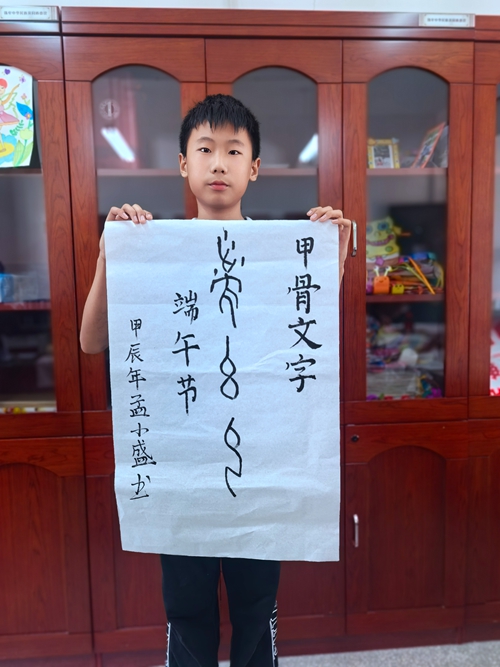 甲骨文字
端午节
甲辰年孟小盛书